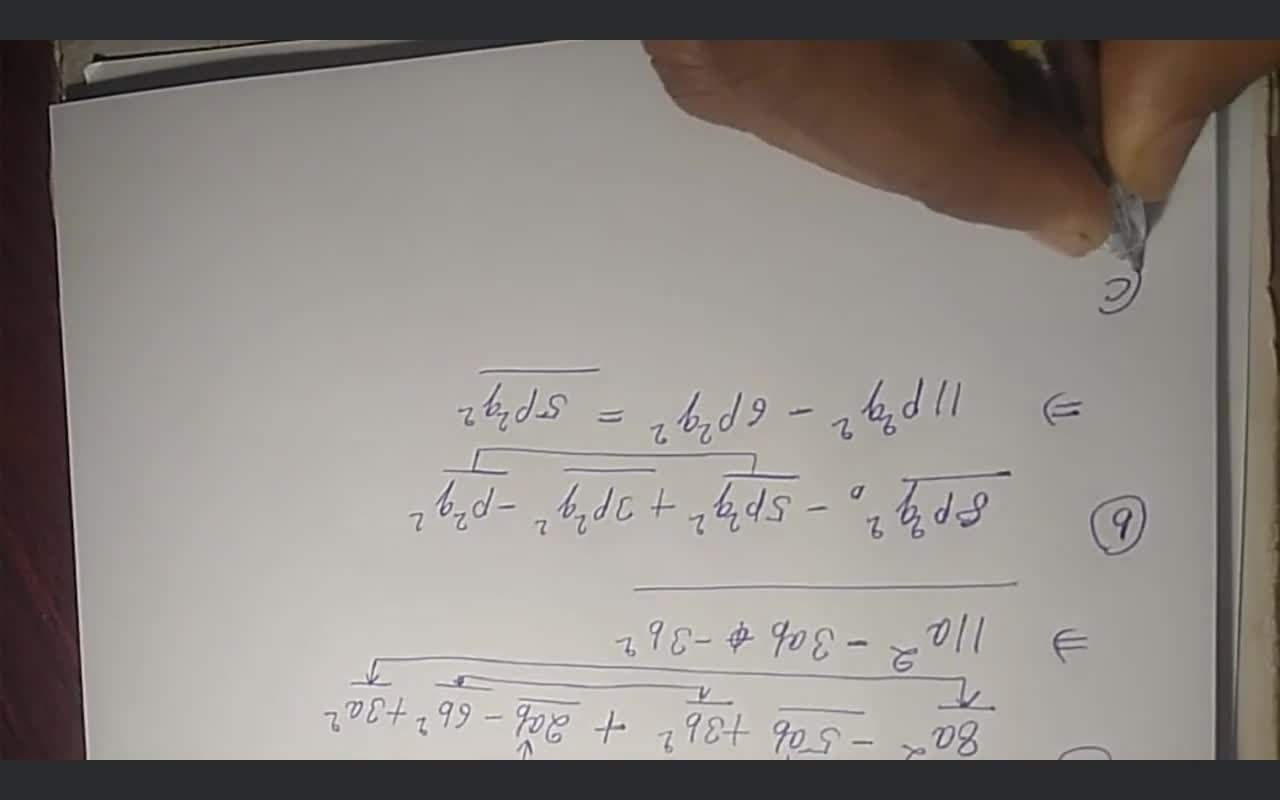 8a² - 5ab + 3b² + 2ab - 6b² + 3a²
⇒ 11a² - 3ab - 3b²
(b) 8p²q² - 5p²q² + 3p²q² - p²q²
⇒ 11p²q² - 6p²q² = 5p²q²
(c